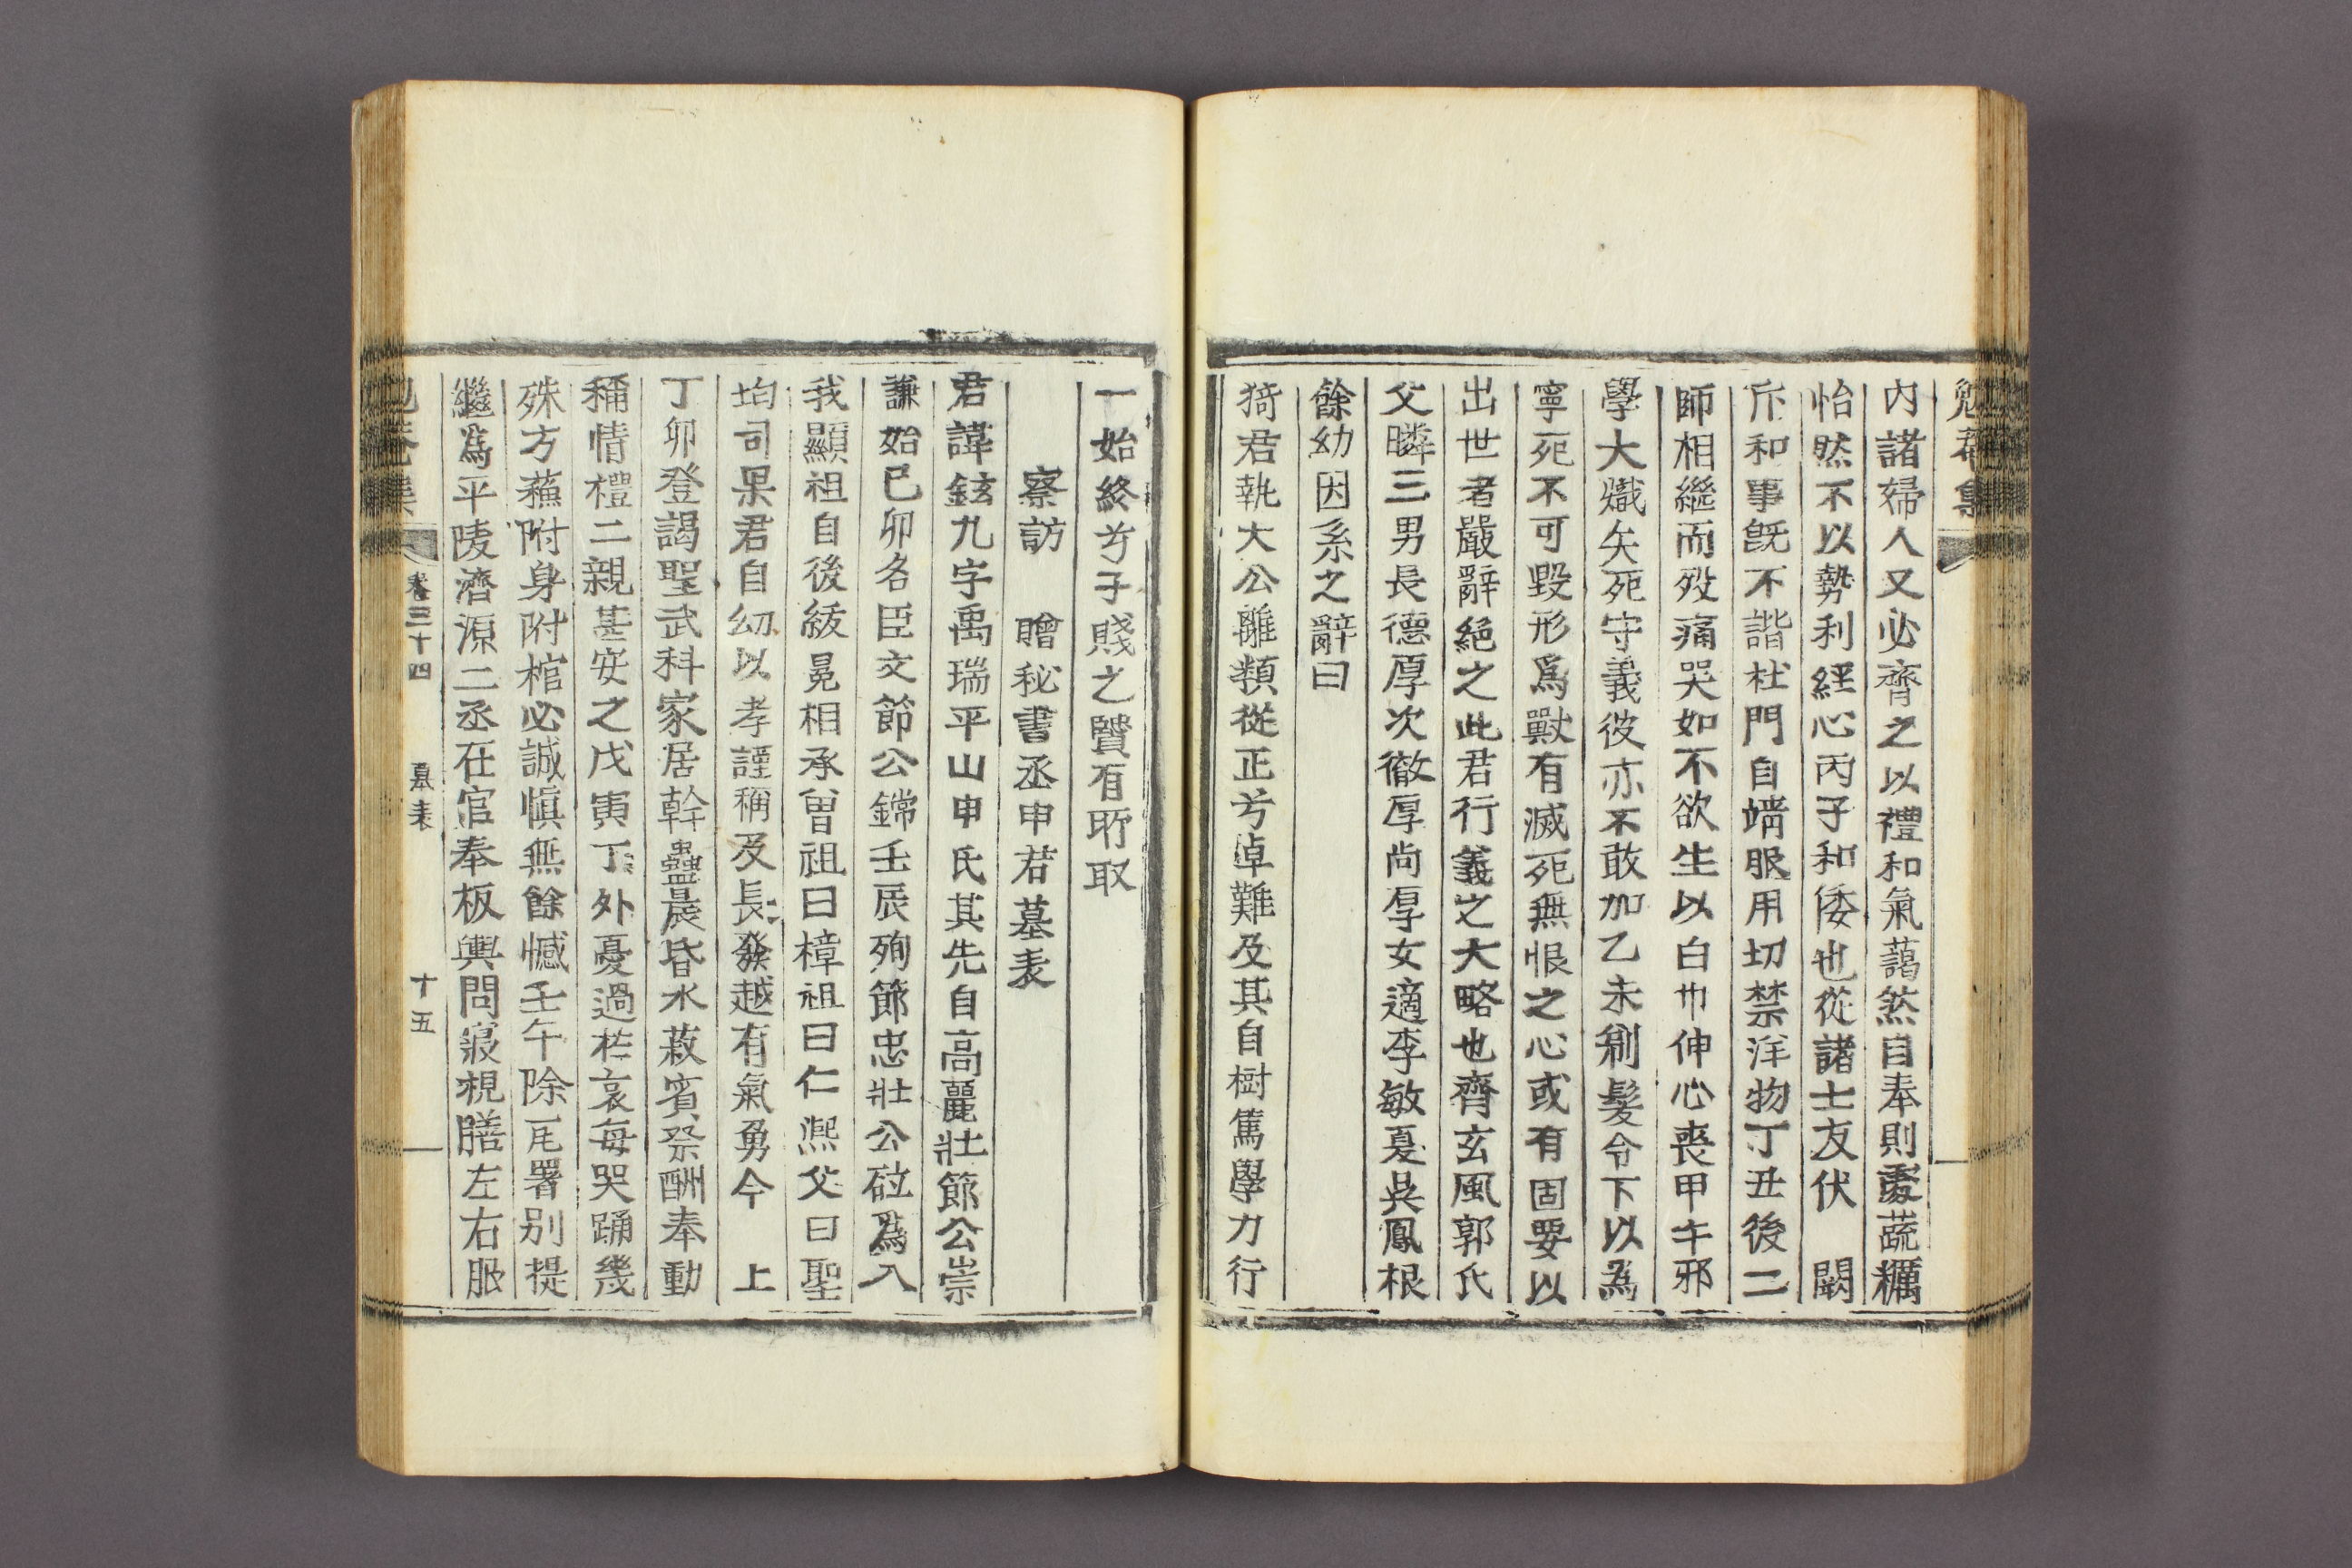 勉菴集
內諸婦人又必齊之以禮和氣藹然自奉則麤蔬糲
怡然不以勢利經心丙子和倭也從諸士友伏　闕
斥和事旣不諧杜門自靖服用切禁洋物丁丑後二
師相繼而歿痛哭如不欲生以白巾伸心喪甲午邪
學大熾矢死守義彼亦不敢加乙未剃髮令下以為
寧死不可毀形爲獸有滅死無恨之心或有固要以
出世者嚴辭絕之此君行義之大略也齊玄風郭氏
父疄三男長德厚次徹厚尚厚女適李敏夏吳鳳根
餘幼因系之辭曰
猗君執大公離類從正兮卓難及其自樹篤學力行
一始終兮子賤之賢有所取
察訪　贈秘書丞申君墓表
君諱鉉九字禹瑞平山申氏其先自高麗壯節公崇
謙始己卯名臣文節公鏛壬辰殉節忠壯公砬為入
我顯祖自後紱冕相承曾祖曰樟祖曰仁凞父曰聖
均司果君自幼以孝謹稱及長發越有氣勇今　上
丁卯登謁聖武科家居幹蠱晨昏水菽賓祭酬奉動
稱情禮二親甚安之戊寅丁外憂過於哀每哭踊幾
殊方蘓附身附棺必誠愼無餘憾壬午除瓦署別提
繼為平陵濟源二丞在官奉板輿問寢視膳左右服
勉菴集　卷三十四　墓表　十五